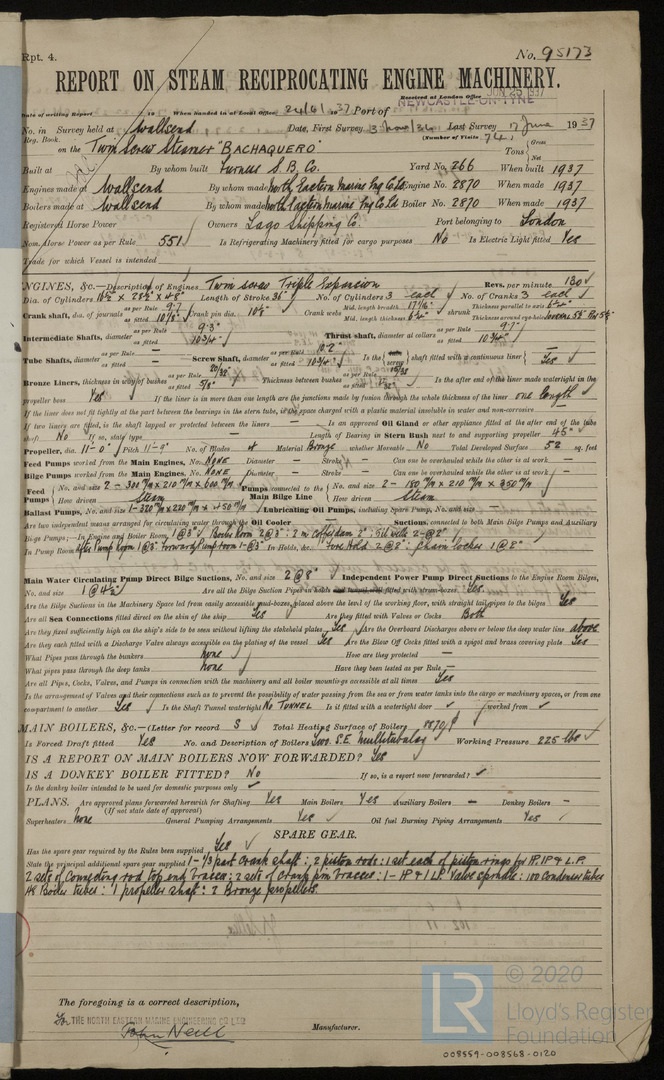 Rpt. 4.
No. 95173
REPORT ON STEAM RECIPROCATING ENGINE MACHINERY.
Received at London Office JUN 25 1937
Date of writing Report 19 When handed in at Local Office 24/6/1937 Port of NEWCASTLE-ON-TYNE
No. in Survey held at Wallsend Date, First Survey 3 Nov/36 Last Survey 17 June 1937
Reg. Book. (Number of Visits 74)
on the Twin Screw Steamer "BACHAQUERO" Tons Gross Net
Built at By whom built Furness S. B. Co. Yard No. 266 When built 1937
Engines made at Wallsend By whom made North Eastern Marine Eng Co Ld Engine No. 2870 When made 1937
Boilers made at Wallsend By whom made North Eastern Marine Eng Co Ld Boiler No. 2870 When made 1937
Registered Horse Power Owners Lago Shipping Co. Port belonging to London
Nom. Horse Power as per Rule 551 Is Refrigerating Machinery fitted for cargo purposes No Is Electric Light fitted Yes
Trade for which Vessel is intended
ENGINES, &c.—Description of Engines Twin screw Triple Expansion Revs. per minute 130
Dia. of Cylinders Length of Stroke 36" No. of Cylinders 3 each No. of Cranks 3 each
Crank shaft, dia. of journals as per Rule 9.7 as fitted 10 1/8" Crank pin dia. 10 1/2" Crank webs Mid. length breadth 17 1/8" Mid. length thickness 6 1/4" shrunk Thickness parallel to axis 6 1/4" Thickness around eye-hole
Intermediate Shafts, diameter as per Rule 9.3" as fitted 10 3/4" Thrust shaft, diameter at collars as per Rule 9.7" as fitted 10 3/4"
Tube Shafts, diameter as per Rule — as fitted — Screw Shaft, diameter as per Rule 10.2 as fitted 10 3/4" Is the screw shaft fitted with a continuous liner Yes
Bronze Liners, thickness in way of bushes as per Rule 20/32" as fitted 5/8" Thickness between bushes as per Rule 15/32 as fitted Is the after end of the liner made watertight in the
propeller boss Yes If the liner is in more than one length are the junctions made by fusion through the whole thickness of the liner one length
If the liner does not fit tightly at the part between the bearings in the stern tube, is the space charged with a plastic material insoluble in water and non-corrosive —
If two liners are fitted, is the shaft lapped or protected between the liners — Is an approved Oil Gland or other appliance fitted at the after end of the tube
shaft No If so, state type — Length of Bearing in Stern Bush next to and supporting propeller 45"
Propeller, dia. 11'-0" Pitch 11'-9" No. of Blades 4 Material Bronze whether Moveable No Total Developed Surface 52 sq. feet
Feed Pumps worked from the Main Engines, No. NONE Diameter — Stroke — Can one be overhauled while the other is at work —
Bilge Pumps worked from the Main Engines, No. NONE Diameter — Stroke — Can one be overhauled while the other is at work —
Feed Pumps No. and size 2 - 300 m/m x 210 m/m x 600 m/m How driven Steam Pumps connected to the Main Bilge Line No. and size 2 - 150 m/m x 210 m/m x 350 m/m How driven Steam
Ballast Pumps, No. and size 1-320 m/m x 220 m/m x 450 m/m Lubricating Oil Pumps, including Spare Pump, No. and size —
Are two independent means arranged for circulating water through the Oil Cooler Suctions, connected to both Main Bilge Pumps and Auxiliary
Bilge Pumps;—In Engine and Boiler Room, 1@3" Boiler Room 2@3": 2 in Cofferdam 2": 5 oil wells 2-2"
In Pump Room After Pump Room 1@3" Forward Pump room 1-@3" In Holds, &c. Fore Hold 2@3": Chain locker 1@2"
Main Water Circulating Pump Direct Bilge Suctions, No. and size 2@8" Independent Power Pump Direct Suctions to the Engine Room Bilges,
No. and size 1@4 1/2" Are all the Bilge Suction Pipes in holds and tunnel well fitted with strum-boxes Yes.
Are the Bilge Suctions in the Machinery Space led from easily accessible mud-boxes, placed above the level of the working floor, with straight tail pipes to the bilges Yes
Are all Sea Connections fitted direct on the skin of the ship Yes Are they fitted with Valves or Cocks Both
Are they fixed sufficiently high on the ship's side to be seen without lifting the stokehold plates Yes Are the Overboard Discharges above or below the deep water line above
Are they each fitted with a Discharge Valve always accessible on the plating of the vessel Yes Are the Blow Off Cocks fitted with a spigot and brass covering plate Yes
What Pipes pass through the bunkers None How are they protected —
What pipes pass through the deep tanks None Have they been tested as per Rule —
Are all Pipes, Cocks, Valves, and Pumps in connection with the machinery and all boiler mountings accessible at all times Yes
Is the arrangement of Valves and their connections such as to prevent the possibility of water passing from the sea or from water tanks into the cargo or machinery spaces, or from one
compartment to another Yes Is the Shaft Tunnel watertight No TUNNEL Is it fitted with a watertight door worked from
MAIN BOILERS, &c.—(Letter for record S) Total Heating Surface of Boilers 8870
Is Forced Draft fitted Yes No. and Description of Boilers Two S.E. Multitubular Working Pressure 225 lbs
IS A REPORT ON MAIN BOILERS NOW FORWARDED? Yes
IS A DONKEY BOILER FITTED? No If so, is a report now forwarded?
Is the donkey boiler intended to be used for domestic purposes only
PLANS. Are approved plans forwarded herewith for Shafting Yes Main Boilers Yes Auxiliary Boilers — Donkey Boilers —
(If not state date of approval)
Superheaters None General Pumping Arrangements Yes Oil fuel Burning Piping Arrangements Yes
SPARE GEAR.
Has the spare gear required by the Rules been supplied Yes
State the principal additional spare gear supplied 1 - 1/3 part crank shaft: 2 piston rods: 1 set each of piston rings for HP. IP & L.P.
2 sets of Connecting rod top end braces: 2 sets of crank pin braces: 1 - HP & 1 LP Valve spindle: 100 Condenser tubes
Boiler tubes: 1 propeller shaft: 2 Bronze propellers.
The foregoing is a correct description,
For THE NORTH EASTERN MARINE ENGINEERING CO LTD
John Neill Manufacturer.
© 2020
LR Lloyd's Register
Foundation
008559-008568-0120